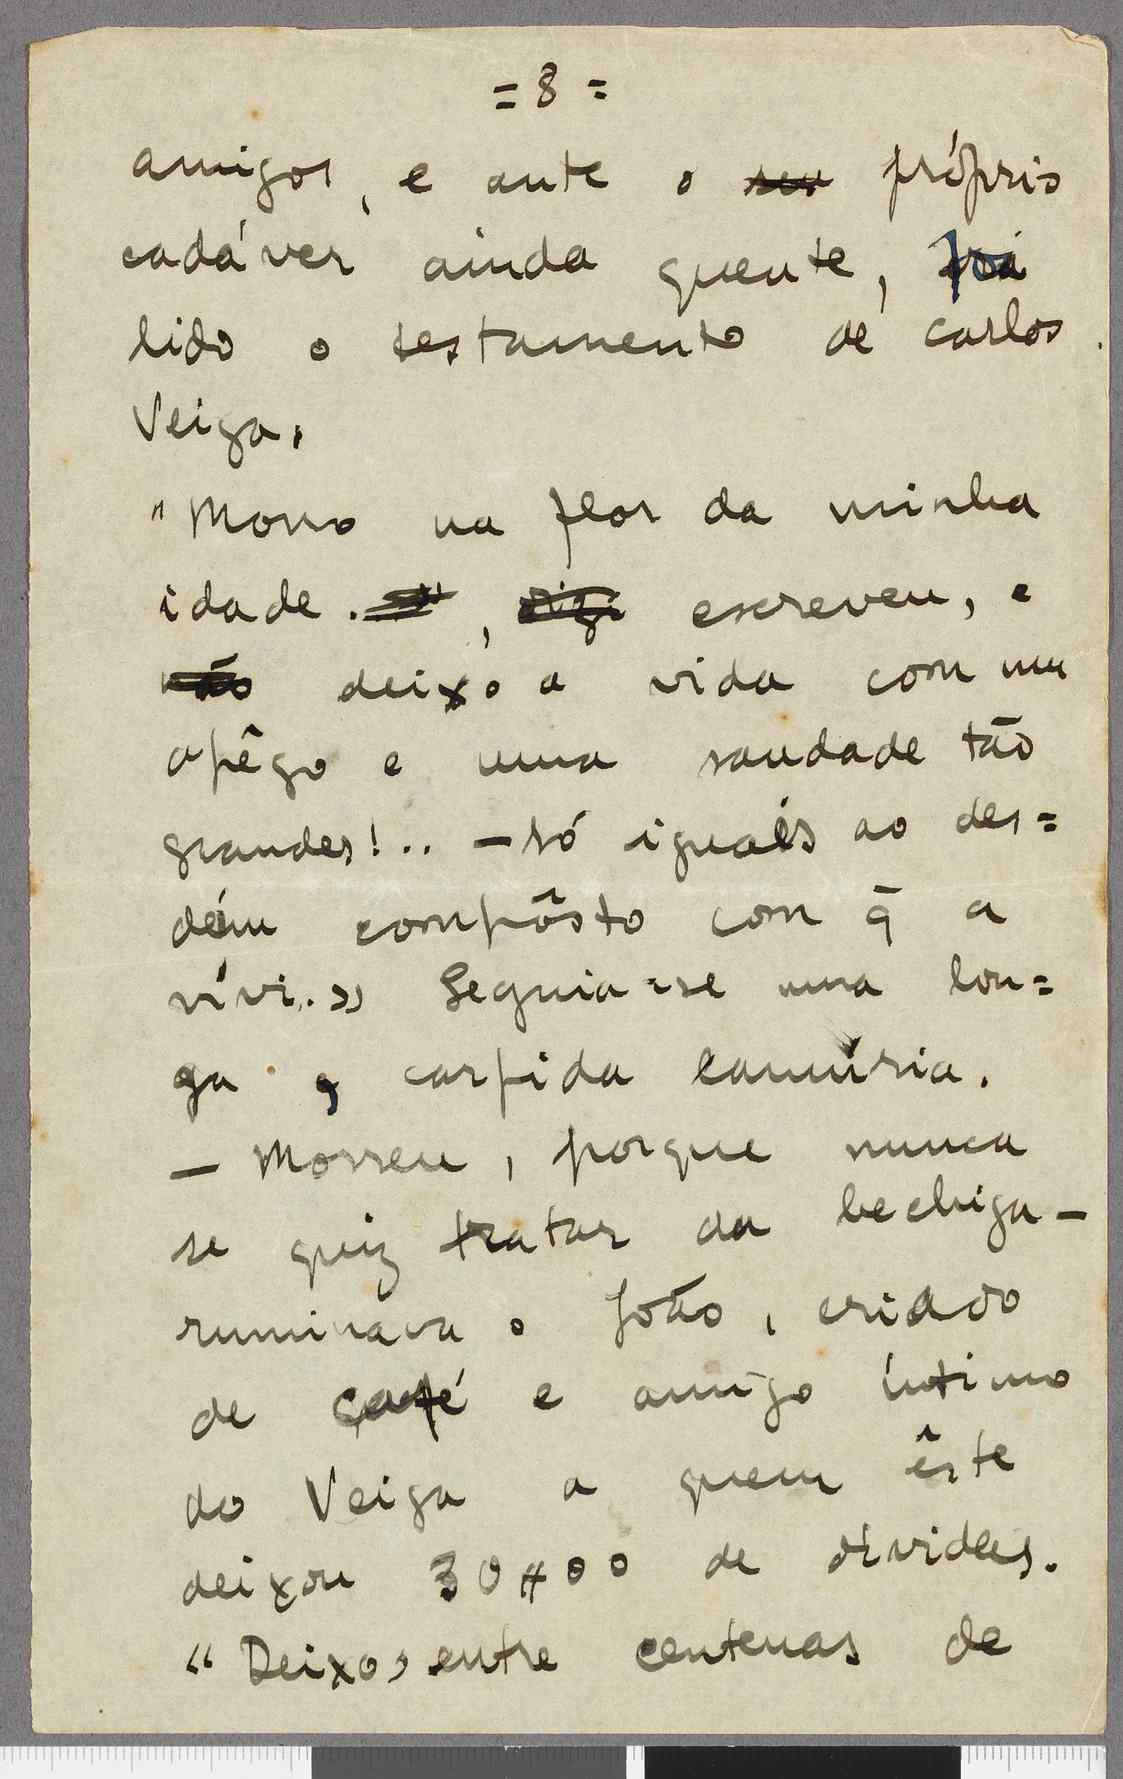 =8=
amigos, e ante o seu próprio
cadáver ainda quente, foi
lido o testamento de Carlos
Veiga.
"Morro na flor da minha
idade. , escreveu, e
não deixo a vida com um
apêgo e uma saudade tão
grandes!.. – só iguais ao des=
dém compôsto com q̃ a
vívi.» Seguia-se uma lon=
ga, carpida lamúria.
– Morreu, porque nunca
se quiz tratar da bechiga –
ruminava o João, criado
de café e amigo íntimo
do Veiga a quem êste
deixou 30#00 de dividas.
"Deixo, entre centenas de